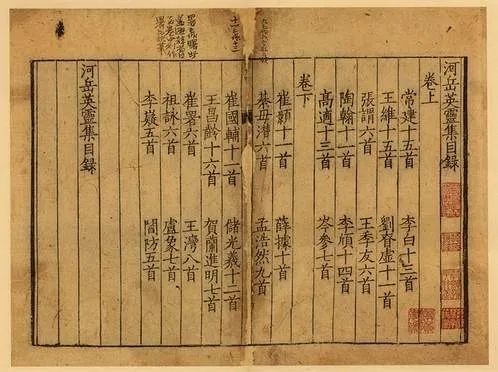 河岳英靈集目錄
卷上
常建十五首　李白十三首
王維十五首　劉昚虛十一首
張謂六首　王季友六首
陶翰十一首　李頎十四首
高適十三首　岑參七首
卷下
崔顥十一首　薛據十首
綦毋潛六首　孟浩然九首
崔國輔十一首　儲光羲十二首
王昌齡十六首　賀蘭進明七首
崔署六首　王灣八首
祖詠六首　盧象七首
李嶷五首　閻防五首
河岳英靈集目錄